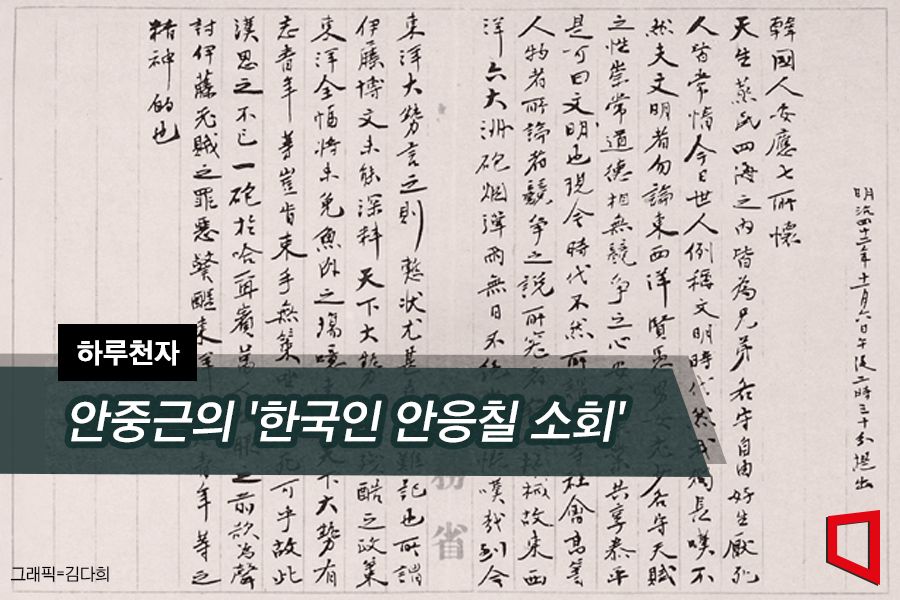 明治四十二年十一月六日午後二時三十分提出
韓國人安應七所懷
天生蒸民四海之內皆為兄弟各守自由好生厭死
人皆常情今日世人例稱文明時代然我獨長嘆不
然夫文明者勿論東西洋賢愚男女老少各守天賦
之性崇常道德相無競爭之心業共享泰平
是可曰文明也現今時代不然所謂等社會高等
人物者所論者競爭之說所究者機械故東西
洋六大洲砲烟彈雨無日不慨嘆哉到今
東洋大勢言之則慘狀尤甚難記也所謂
伊藤博文未能深料天下大勢殘酷之政策
東洋全幅將未免魚肉之場噫天下大勢有
志青年等豈肯束手無策坐死可乎故此
漢思之不已一砲於哈爾賓萬人眼之前欲為聲
討伊藤老賊之罪惡警醒東洋青年等之
精神的也
省
하루천자
안중근의 '한국인 안응칠 소회'
그래픽=김다희